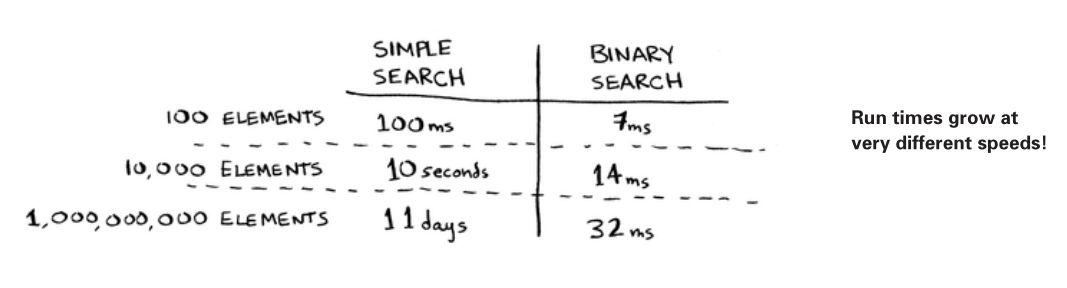 SIMPLE SEARCH
BINARY SEARCH
100 ELEMENTS 100ms 7ms
10,000 ELEMENTS 10 seconds 14ms
1,000,000,000 ELEMENTS 11 days 32 ms
Run times grow at
very different speeds!